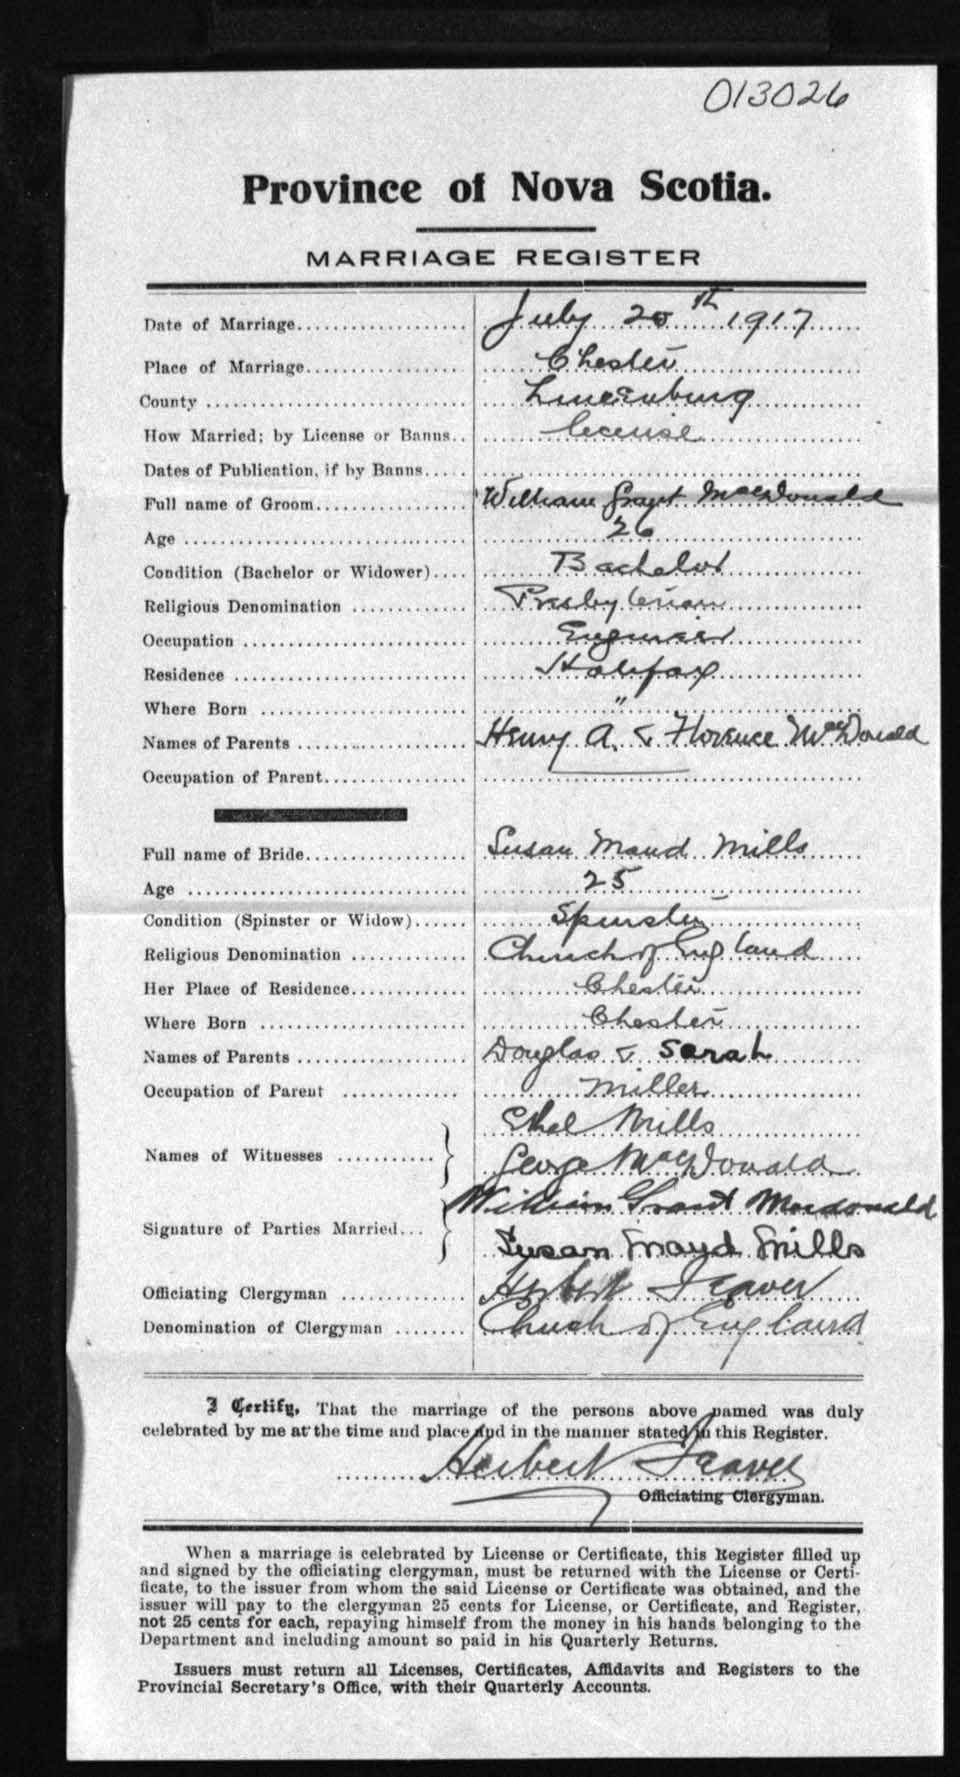 013026
Province of Nova Scotia.
MARRIAGE REGISTER
Date of Marriage.................... July 20th 1917
Place of Marriage................. Chester
County .......................... Lunenburg
How Married; by License or Banns.. license
Dates of Publication, if by Banns.....
Full name of Groom................ William Grant MacDonald
Age ............................. 26
Condition (Bachelor or Widower).... Bachelor
Religious Denomination ............ Presbyterian
Occupation ....................... Engineer
Residence ........................ Halifax
Where Born ..................... "
Names of Parents ................. Henry A. & Florence MacDonald
Occupation of Parent..............
Full name of Bride................. Susan Maud Mills
Age ............................. 25
Condition (Spinster or Widow)...... Spinster
Religious Denomination ............ Church of England
Her Place of Residence............. Chester
Where Born ..................... Chester
Names of Parents ................. Douglas & Sarah
Occupation of Parent ............. Miller
Ethel Mills
Names of Witnesses ........... } George MacDonald
William Grant Macdonald
Signature of Parties Married... } Susan Maud Mills
Officiating Clergyman ............. Herbert
Denomination of Clergyman ........ Church of England
I Certify, That the marriage of the persons above named was duly
celebrated by me at the time and place and in the manner stated in this Register.
Herbert
Officiating Clergyman.
When a marriage is celebrated by License or Certificate, this Register filled up
and signed by the officiating clergyman, must be returned with the License or Certi-
ficate, to the issuer from whom the said License or Certificate was obtained, and the
issuer will pay to the clergyman 25 cents for License, or Certificate, and Register,
not 25 cents for each, repaying himself from the money in his hands belonging to the
Department and including amount so paid in his Quarterly Returns.
Issuers must return all Licenses, Certificates, Affidavits and Registers to the
Provincial Secretary's Office, with their Quarterly Accounts.